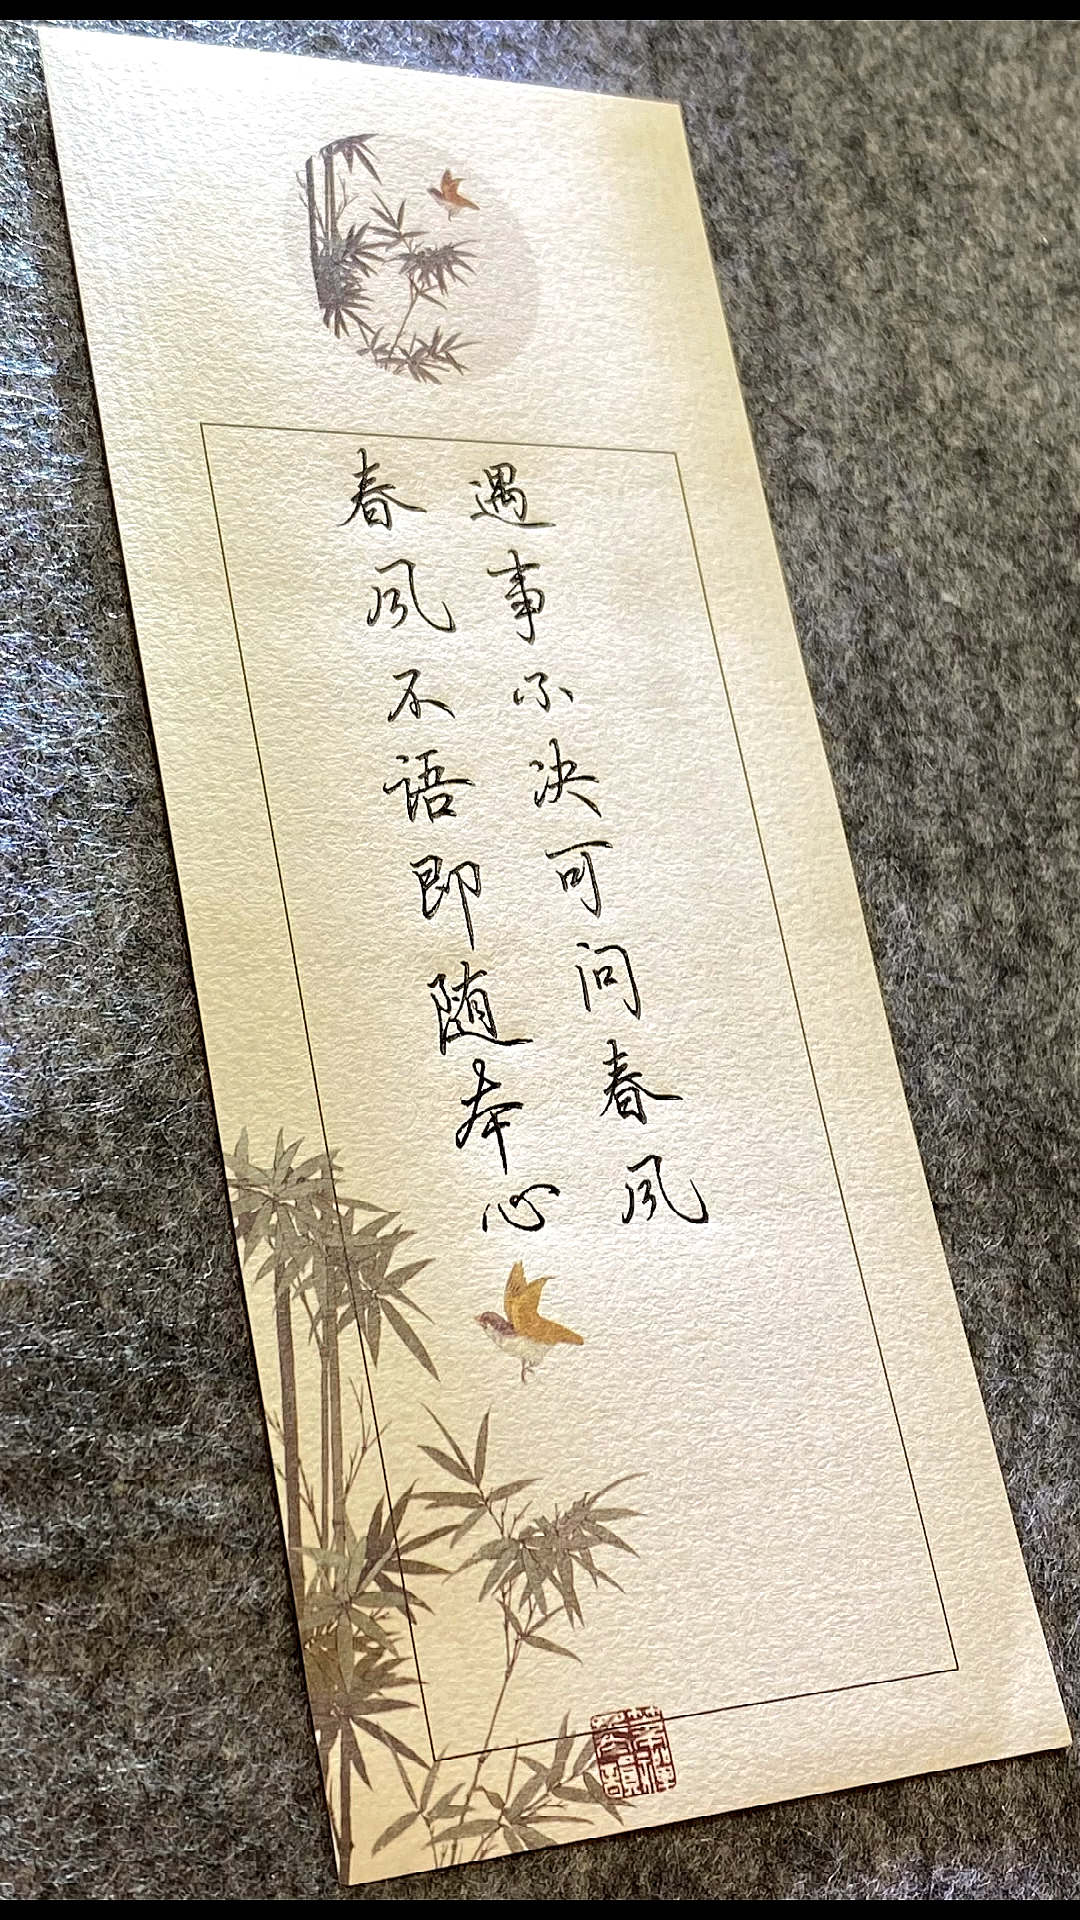 遇事不决可问春风
春风不语即随本心